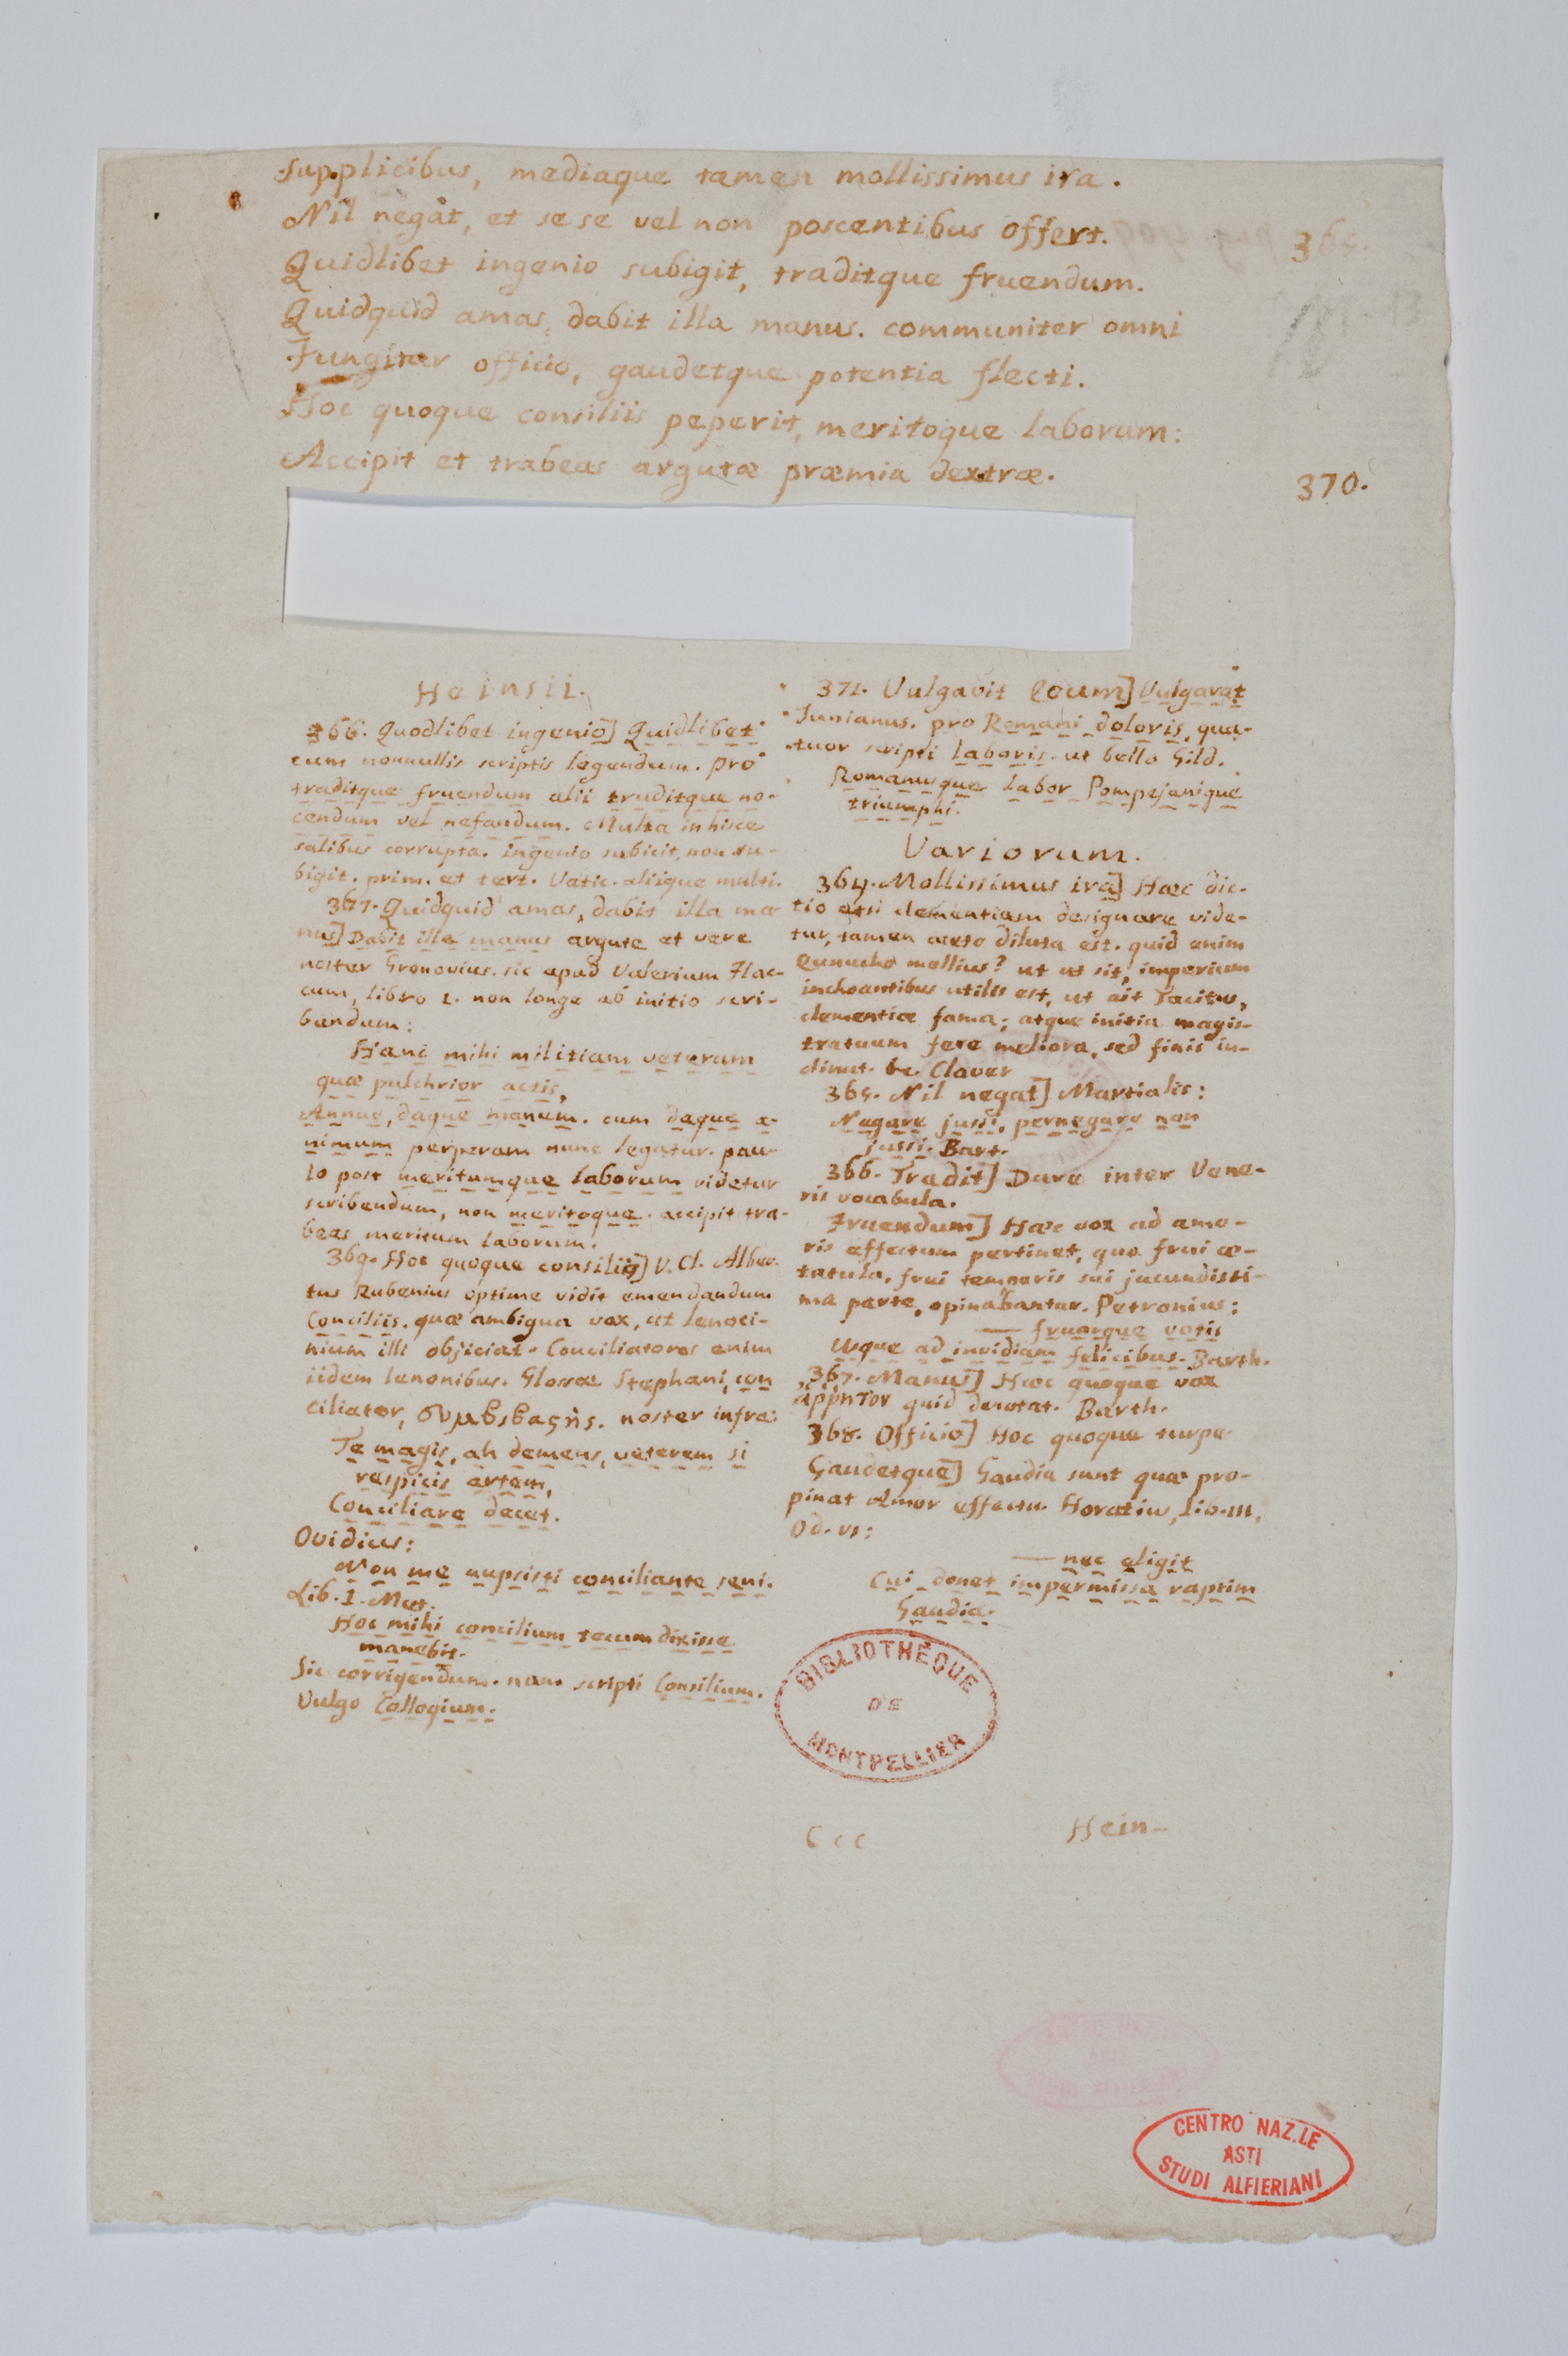 supplicibus, mediaque tamen mollissimus ira.
Nil negat, et sese vel non poscentibus offert.
365.
Quidlibet ingenio subigit, traditque fruendum.
Quidquid amas, dabit illa manus. communiter omni
Fungitur officio, gaudetque potentia flecti.
Hoc quoque consiliis peperit, meritoque laborum:
Accipit et trabeas argutæ præmia dextræ.
370.
Heinsii.
366. Quodlibet ingenio] Quidlibet
cum nonnullis scriptis legendum. pro
traditque fruendum alii truditque no-
cendum vel nefandum. Multa in hisce
salibus corrupta. ingenio subicit, non su-
bigit. prim. et tert. Vatic. aliique multi.
367. Quidquid amas, dabit illa ma
nus] Dabit illa manus argute et vere
noster Gronovius. sic apud Valerium Flac-
cum, libro 1. non longe ab initio scri-
bendum:
Hanc mihi militiam veterum
quæ pulchrior actis,
Annue, daque manum. cum daque a-
nimum perperam nunc legatur. pau-
lo post meritumque laborum videtur
scribendum, non meritoque. accipit tra-
beas meritum laborum.
369. Hoc quoque consiliis] V. Cl. Alber-
tus Rubenius optime vidit emendandum
Conciliis. quæ ambigua vox, ut lenoci-
nium illi objiciat. Conciliatores enim
iidem lenonibus. Glossæ Stephani, con
ciliator, συμβιβαςὴς. noster infra:
Te magis, ah demens, veterem si
respicis artem,
Conciliare decet.
Ovidius:
Non me nupsisti conciliante seni.
Lib. 1. Met.
Hoc mihi concilium tecum dixisse
manebit.
Sic corrigendum. nam scripti Consilium.
Vulgo Collogium.
371. Vulgavit locum] Vulgarat
Junianus. pro Romani doloris, qua-
tuor scripti laboris. ut bello Gild.
Romanusque labor Pompejanique
triumphi.
Variorum.
364. Mollissimus ira] Hæc dic-
tio etsi clementiam designare vide-
tur, tamen aceto diluta est. quid enim
Eunucho mollius? ut ut sit, imperium
inchoantibus utilis est, ut ait Tacitus,
clementiæ fama; atque initia magis-
tratuum fere meliora, sed finis in-
clinat. Claver
365. Nil negat] Martialis:
Negare jussi, pernegare non
jussi. Bart.
366. Tradit] Dare inter Vene-
ris vocabula.
Fruendum] Hæc vox ad amo-
ris effectum pertinet, quo frui æ-
tatula, frui temporis sui jucundissi-
ma parte, opinabantur. Petronius:
— fruorque votis
Usque ad invidiam felicibus. Barth.
367. Manus] Hæc quoque vox
ἄῤῥητον quid denotat. Barth.
368. Officio] Hoc quoque turpe
Gaudetque] Gaudia sunt quæ pro-
pinat Amor effectu. Horatius, lib. III,
Od. VI:
— nec eligit
Cui donet impermissa raptim
Gaudia.
BIBLIOTHÈQUE
DE
MONTPELLIER
Ccc Hein-
CENTRO NAZ.LE
ASTI
STUDI ALFIERIANI